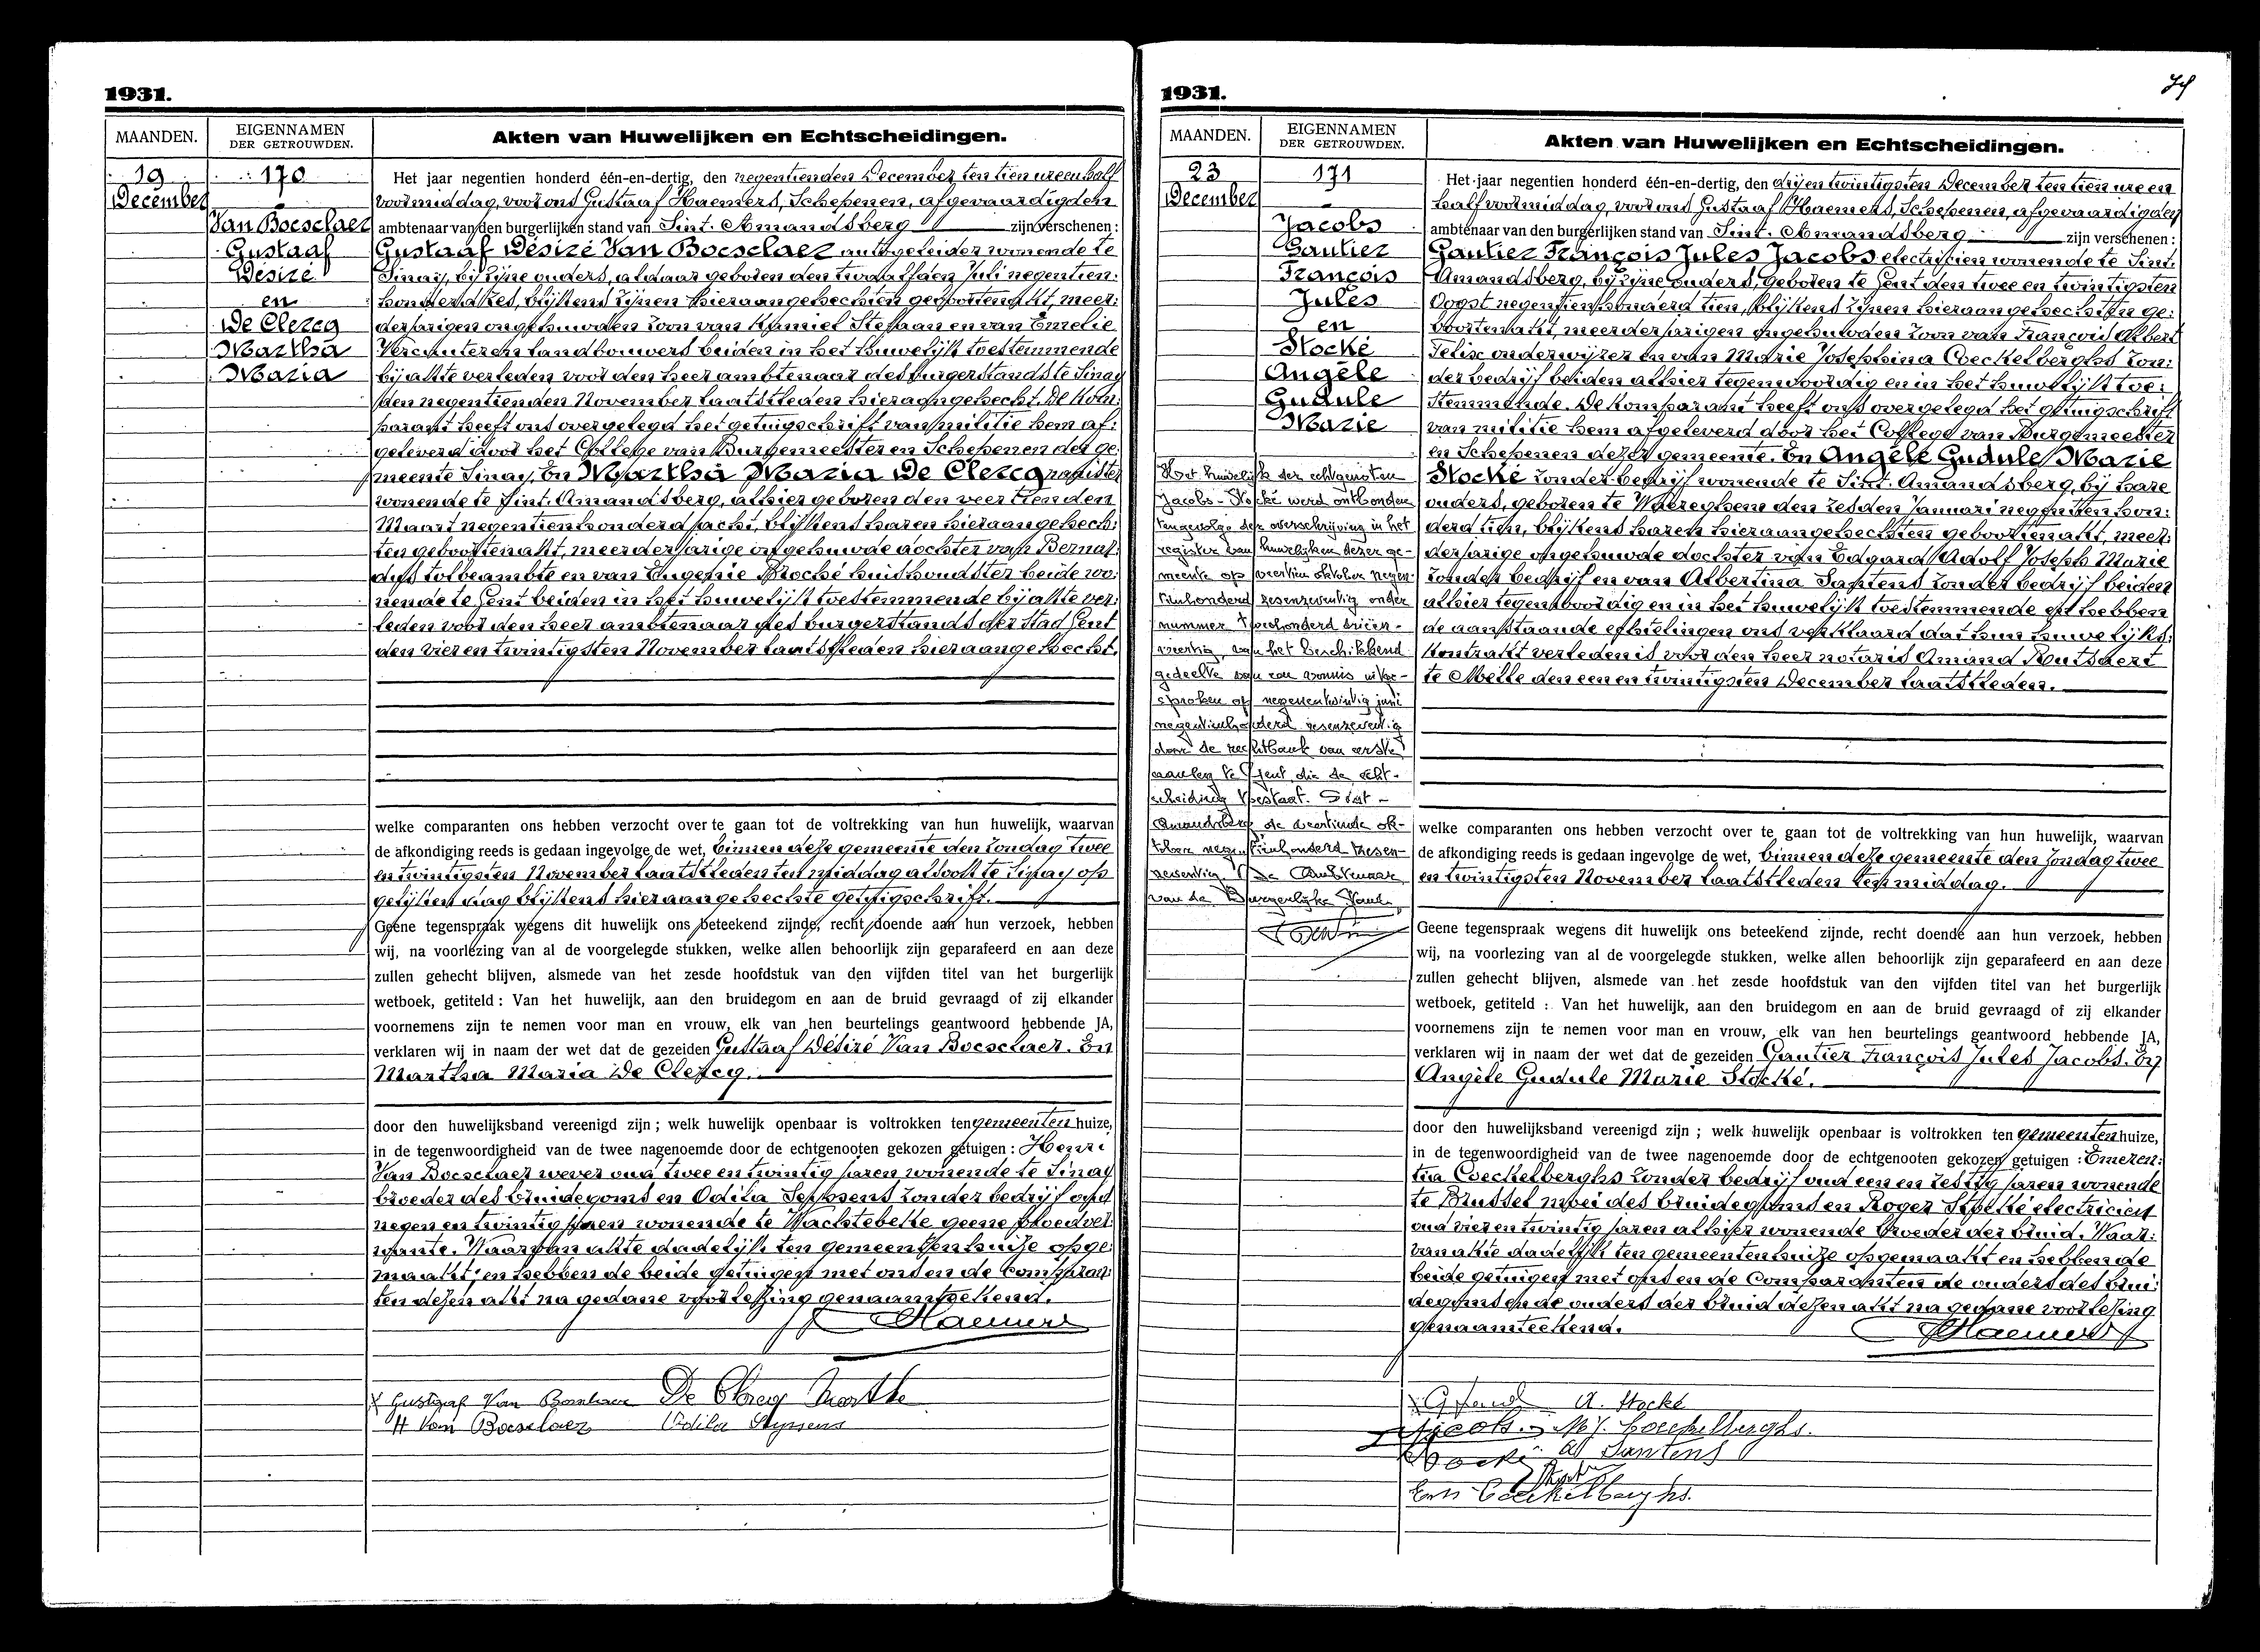 1931.
MAANDEN.
EIGENNAMEN
DER GETROUWDEN.
Akten van Huwelijken en Echtscheidingen.
19
December
170
Van Boesclaer
Gustaaf
Désiré
en
De Clercq
Martha
Maria
Het jaar negentien honderd één-en-dertig, den negentienden December ten tien ure en half
voormiddag, voor ons Gustaaf Haemers, Schepenen, afgevaardigden
ambtenaar van den burgerlijken stand van Sint-Amandsberg zijn verschenen :
Gustaaf Désiré Van Boesclaer autogeleider wonende te
Sinay, bij zijne ouders, aldaar geboren den twaalfden Juli negentien-
honderd zes, blijkens zijnen hieraangehechten geboortenakt, meer-
derjarigen ongehuwden zoon van Kamiel Stefaan en van Emelie
Vercauteren landbouwers beiden in het huwelijk toestemmende
bij akte verleden voor den heer ambtenaar des burgerstands te Sinay
den negentienden November laatstleden hieraangehecht. De kom-
parant heeft ons overgelegd het getuigschrift van militie hem af-
geleverd door het College van Burgemeester en Schepenen der ge-
meente Sinay, En Martha Maria De Clercq
wonende te Sint-Amandsberg, alhier geboren den veertienden
Maart negentienhonderd acht, blijkens haren hieraangehech-
ten geboortenakt, meerderjarige ongehuwde dochter van Bernar-
dus tolbeambte en van Eugenie Stocké huishoudster beide wo-
nende te Gent beiden in het huwelijk toestemmende bij akte ver-
leden voor den heer ambtenaar des burgerstands der stad Gent
den vier en twintigsten November laatstleden hieraangehecht.
welke comparanten ons hebben verzocht over te gaan tot de voltrekking van hun huwelijk, waarvan
de afkondiging reeds is gedaan ingevolge de wet, binnen deze gemeente den zondag twee
en twintigsten November laatstleden ten middag alsook te Sinay op
gelijken dag blijkens hieraangehechte getuigschrift.
Geene tegenspraak wegens dit huwelijk ons beteekend zijnde, recht doende aan hun verzoek, hebben
wij, na voorlezing van al de voorgelegde stukken, welke allen behoorlijk zijn geparafeerd en aan deze
zullen gehecht blijven, alsmede van het zesde hoofdstuk van den vijfden titel van het burgerlijk
wetboek, getiteld : Van het huwelijk, aan den bruidegom en aan de bruid gevraagd of zij elkander
voornemens zijn te nemen voor man en vrouw, elk van hen beurtelings geantwoord hebbende JA,
verklaren wij in naam der wet dat de gezeiden Gustaaf Désiré Van Boesclaer. En
Martha Maria De Clercq.
door den huwelijksband vereenigd zijn ; welk huwelijk openbaar is voltrokken ten gemeenten huize,
in de tegenwoordigheid van de twee nagenoemde door de echtgenooten gekozen getuigen : Henri
Van Boesclaer wever oud twee en twintig jaren wonende te Sinay
broeder des bruidegoms en Odila Seyssens zonder bedrijf oud
negen en twintig jaren wonende te Wachtebeke geene bloedver-
wante. Waarvan akte dadelijk ten gemeentenhuize opge-
maakt; en hebben de beide getuigen met ons en de Comparan-
ten dezen akt na gedane voorlezing genaamteekend.
Haemers
Gustaaf Van Boesclaer De Clercq Marthe
H Van Boesclaer Odila Seyssens
1931.
MAANDEN.
EIGENNAMEN
DER GETROUWDEN.
Akten van Huwelijken en Echtscheidingen.
23
December
171
Jacobs
Gautier
François
Jules
en
Stocké
Angèle
Gudule
Marie
Het huwelijk der echtgenoten
Jacobs-Stocké werd ontbonden
tengevolge der overschrijving in het
register van huwelijken dezer ge-
meente op veertien oktober negen-
tienhonderd zesenzeventig onder
nummer tweehonderd
van het beschikkend
gedeelte van een vonnis uitge-
sproken op negenentwintig juni
negentienhonderd zesenzeventig
door de rechtbank van eerste
aanleg te Gent, die de echt-
scheiding toestaat. Sint-
Amandsberg de veertiende ok-
tober negentienhonderd zesen-
zeventig. De Ambtenaar
van de Burgerlijke Stand,
Het jaar negentien honderd één-en-dertig, den drij en twintigsten December ten tien ure en
half voormiddag, voor ons Gustaaf Haemers, Schepenen, afgevaardigden
ambtenaar van den burgerlijken stand van Sint-Amandsberg zijn verschenen :
Gautier François Jules Jacobs electricien wonende te Sint-
Amandsberg, bij zijne ouders, geboren te Gent den twee en twintigsten
Oogst negentienhonderd tien, blijkens zijnen hieraangehechten ge-
boortenakt, meerderjarigen ongehuwden zoon van François Albert
Felix onderwijzer en van Marie Josephina Coeckelberghs zon-
der bedrijf beiden alhier tegenwoordig en in het huwelijk toe-
stemmende. De komparant heeft ons overgelegd het getuigschrift
van militie hem afgeleverd door het College van Burgemeester
en Schepenen dezer gemeente. En Angèle Gudule Marie
Stocké zonder bedrijf wonende te Sint-Amandsberg, bij hare
ouders, geboren te Waereghem den zesden Januari negentienhon-
derd tien, blijkens haren hieraangehechten geboortenakt, meer-
derjarige ongehuwde dochter van Edgard Adolf Joseph Marie
zonder bedrijf en van Albertina Santens zonder bedrijf beiden
alhier tegenwoordig en in het huwelijk toestemmende en hebben
de aanstaande echtelingen ons verklaard dat hun huwelijks-
kontrakt verleden is voor den heer notaris Amand Rutsaert
te Melle den een en twintigsten December laatstleden.
welke comparanten ons hebben verzocht over te gaan tot de voltrekking van hun huwelijk, waarvan
de afkondiging reeds is gedaan ingevolge de wet, binnen deze gemeente den zondag twee
en twintigsten November laatstleden ten middag.
Geene tegenspraak wegens dit huwelijk ons beteekend zijnde, recht doende aan hun verzoek, hebben
wij, na voorlezing van al de voorgelegde stukken, welke allen behoorlijk zijn geparafeerd en aan deze
zullen gehecht blijven, alsmede van het zesde hoofdstuk van den vijfden titel van het burgerlijk
wetboek, getiteld : Van het huwelijk, aan den bruidegom en aan de bruid gevraagd of zij elkander
voornemens zijn te nemen voor man en vrouw, elk van hen beurtelings geantwoord hebbende JA,
verklaren wij in naam der wet dat de gezeiden Gautier François Jules Jacobs. En
Angèle Gudule Marie Stocké.
door den huwelijksband vereenigd zijn ; welk huwelijk openbaar is voltrokken ten gemeenten huize,
in de tegenwoordigheid van de twee nagenoemde door de echtgenooten gekozen getuigen : Emeren-
tia Coeckelberghs zonder bedrijf oud een en zestig jaren wonende
te Brussel moei des bruidegoms en Roger Stocké electricien
oud vier en twintig jaren alhier wonende broeder der bruid. Waar-
van akte dadelijk ten gemeentenhuize opgemaakt en hebben de
beide getuigen met ons en de Comparanten de ouders des brui-
degoms en de ouders der bruid dezen akt na gedane voorlezing
genaamteekend.
Haemers
A. Stocké
Jacobs. M J. Coeckelberghs.
Stocké Al Santens
Em Coeckelberghs.